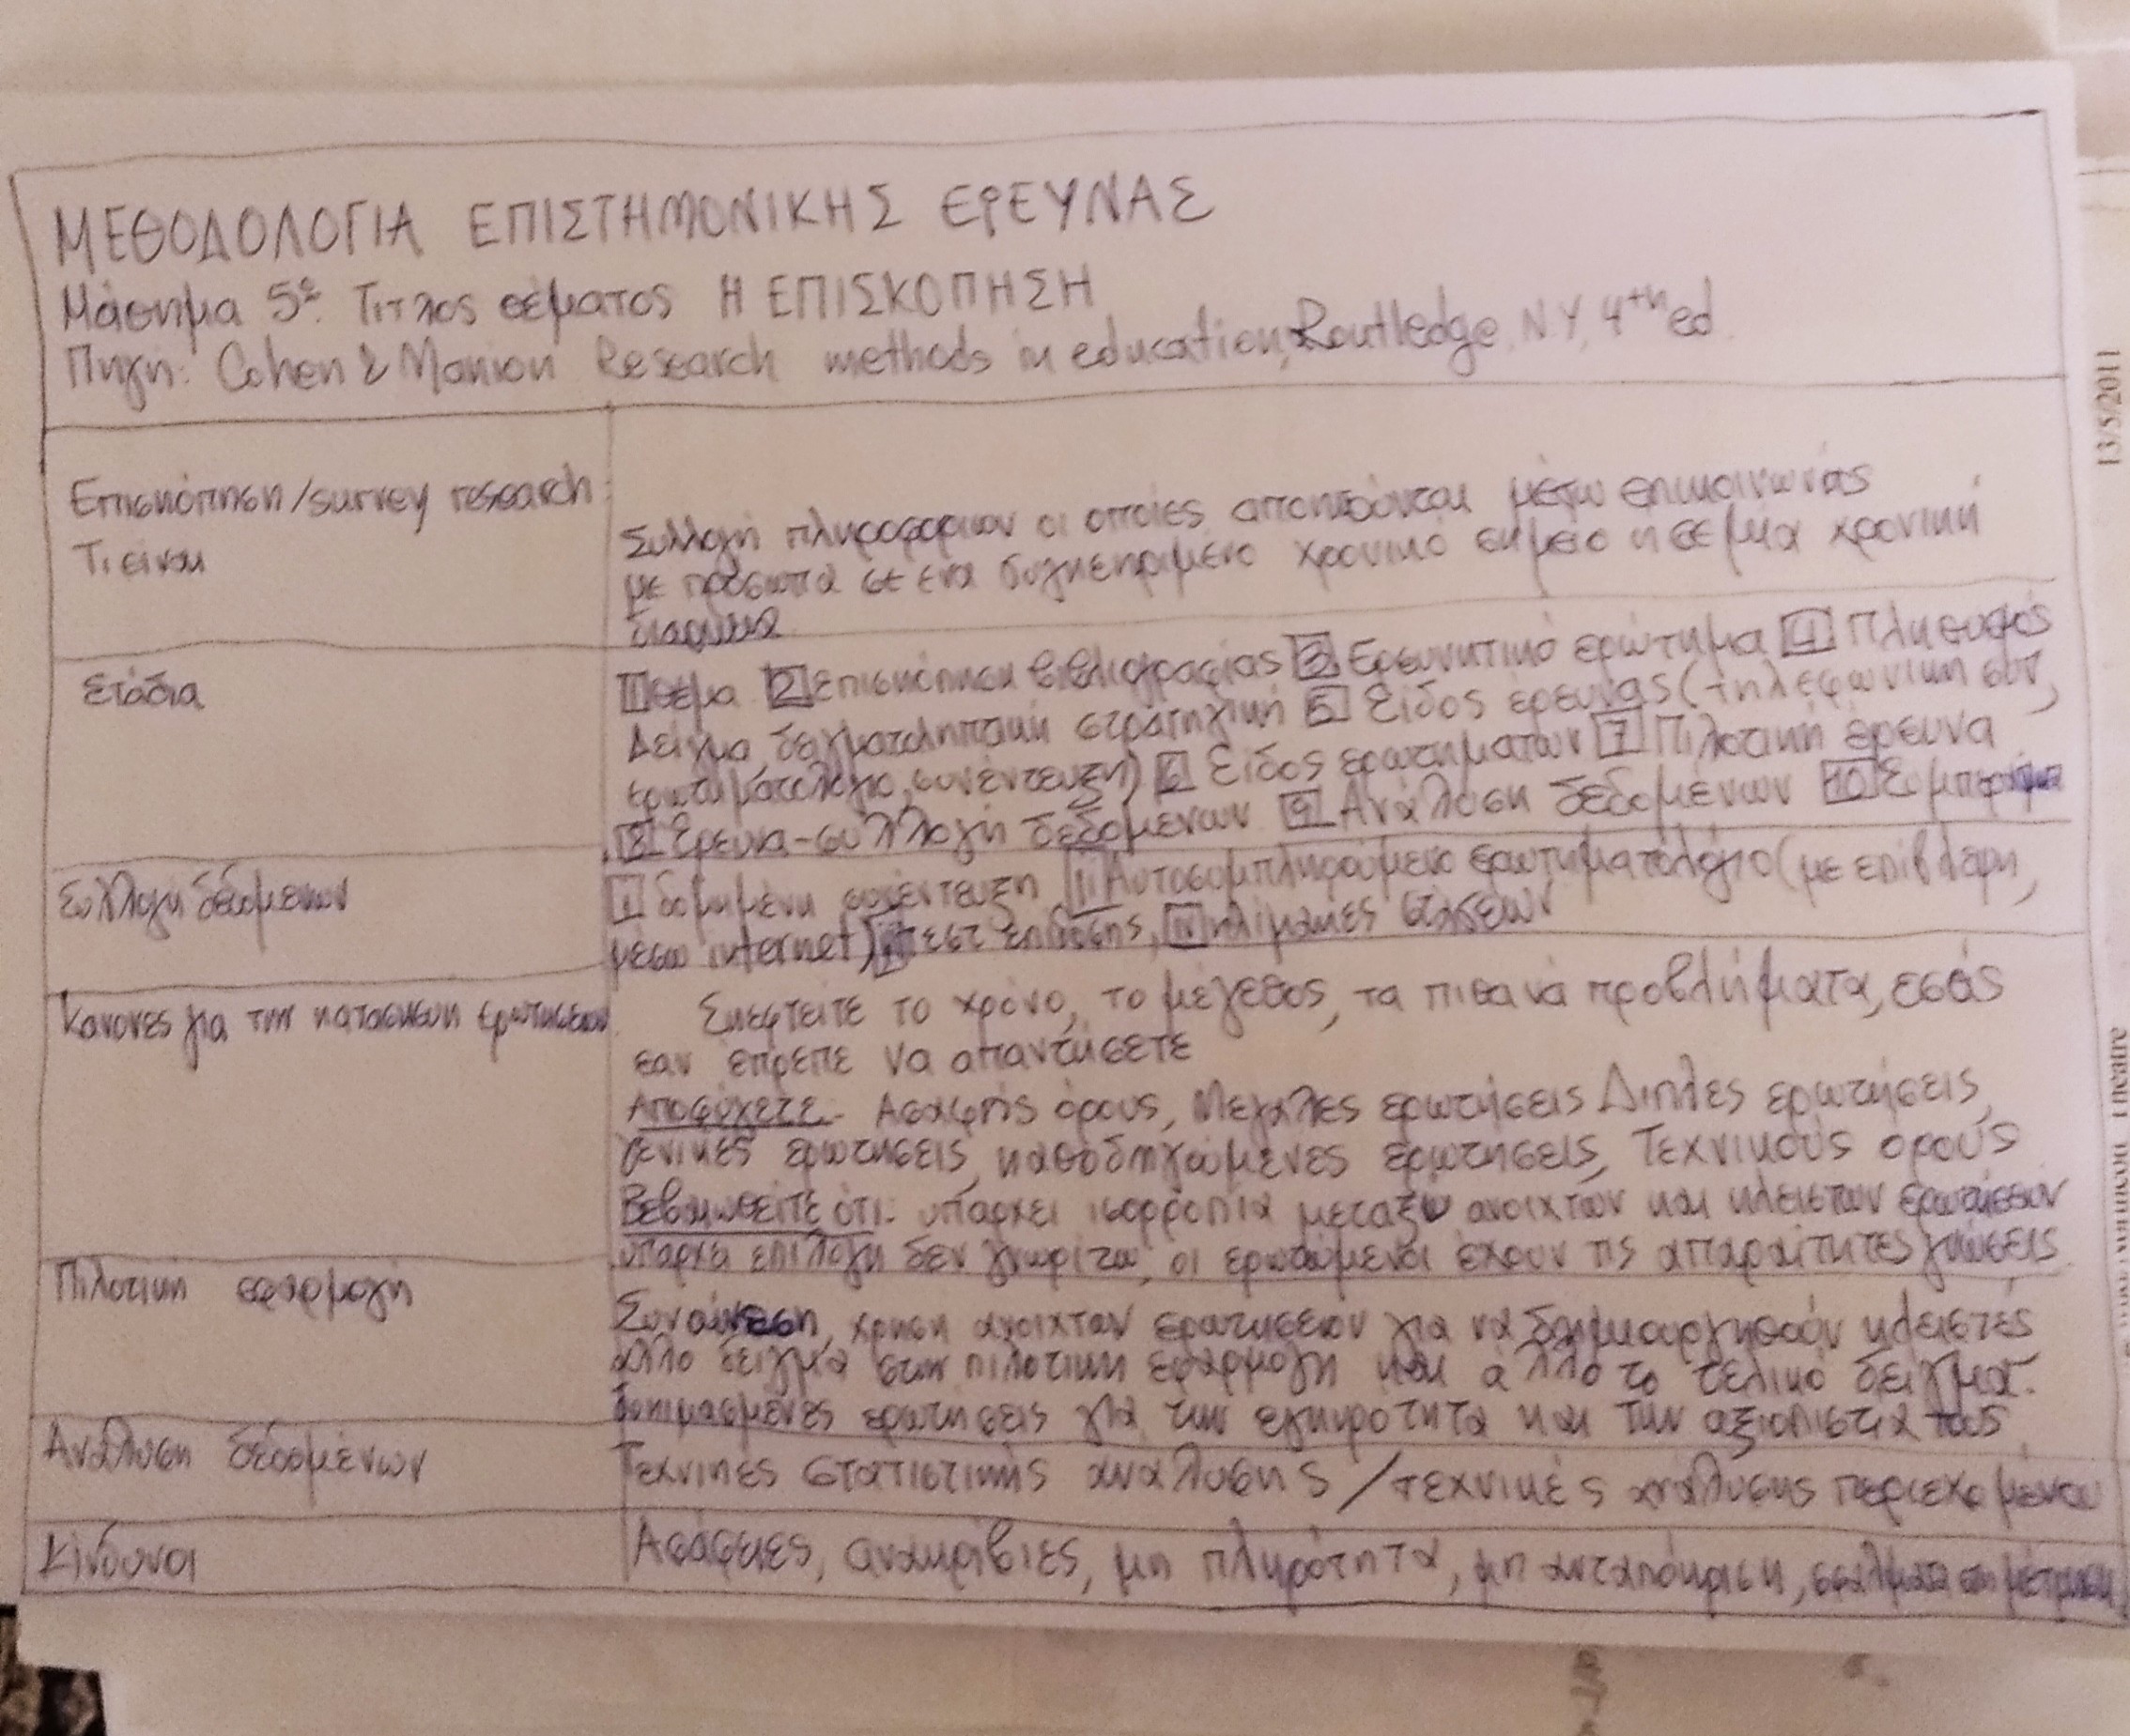 ΜΕΘΟΔΟΛΟΓΙΑ ΕΠΙΣΤΗΜΟΝΙΚΗΣ ΕΡΕΥΝΑΣ
Μάθημα 5º. Τιτλος θέματος Η ΕΠΙΣΚΟΠΗΣΗ
Πηγή: Cohen & Manion Research methods in education, Routledge, N.Y, 4th ed.
Επισκόπηση/survey research:
Τι είναι
Συλλογή πληροφοριων οι οποίες αποκτούνται μέσω επικοινωνίας
με πρόσωπα σε ενα συγκεκριμένο χρονικό σημείο η σε μία χρονική
διάρκεια
Στάδια
1 Θέμα 2 Επισκόπηση βιβλιογραφίας 3 Ερευνητικό ερώτημα 4 Πληθυσμός
Δείγμα, δειγματοληπτική στρατηγική 5 Είδος έρευνας (τηλεφωνική συν,
ερωτηματολόγιο, συνέντευξη) 6 Είδος ερωτημάτων 7 Πιλοτική έρευνα
8 Ερευνα-συλλογή δεδομενων 9 Ανάλυση δεδομένων 10 Συμπεράσματα
Συλλογή δεδομενων
i δομημένη συνέντευξη ii Αυτοσυμπληρούμενο ερωτηματολόγιο (με επίβλεψη,
μεσω internet) iii τεστ επίδοσης, iv κλίμακες στάσεων
Κανονες για την κατασκευη ερωτησεων
Σκεφτείτε το χρόνο, το μέγεθος, τα πιθανά προβλήματα, εσάς
εαν έπρεπε να απαντήσετε
Αποφύγετε- Ασαφείς όρους, Μεγάλες ερωτήσεις Διπλες ερωτήσεις,
γενικες ερωτησεις, καθοδηγούμενες ερωτησεις, Τεχνικους ορους
Βεβαιωθείτε ότι- υπάρχει ισορροπία μεταξύ ανοιχτων και κλειστων ερωτήσεων
υπαρχει επιλογη δεν γνωρίζω, οι ερωτώμενοι έχουν τις απαραίτητες γνώσεις
Πιλοτική εφαρμογή
Συναίνεση, χρηση ανοιχταν ερωτησεων για να δημιουργηθούν κλειστές
άλλο δείγμα στην πιλοτικη εφαρμογη και αλλο το τελικό δείγμα.
δοκιμασμένες ερωτησεις για την εγκυρότητα και την αξιοπιστία τους
Ανάλυση δεδομένων
Τεχνικες στατιστικής ανάλυσης / τεχνικές ανάλυσης περιεχομένου
Κίνδυνοι
Ασάφειες, ανακρίβιες, μη πληρότητα, μη ανταπόκριση, σφάλματα στη μέτρηση
13/5/2011
Theatre